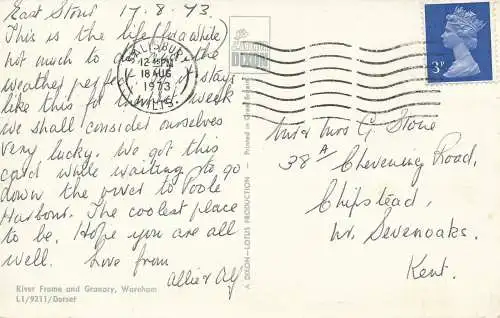 East Stour 17-8-73.
This is the life (for a while)
not much to do & the
weather perfect. If it stays
like this for another week
we shall consider ourselves
very lucky. We got this
card while waiting to go
down the river to Poole
Harbour. The coolest place
to be. Hope you are all
well. Love from
Allie & Alf
River Frome and Granary, Wareham
L1/9211/Dorset
A DIXON-LOTUS PRODUCTION - Printed in Great Britain
DIXON
SALISBURY
12 PM
18 AUG
1973
3P
Mr & Mrs G Stone
38A Chevening Road,
Chipstead,
Nr. Sevenoaks.
Kent.